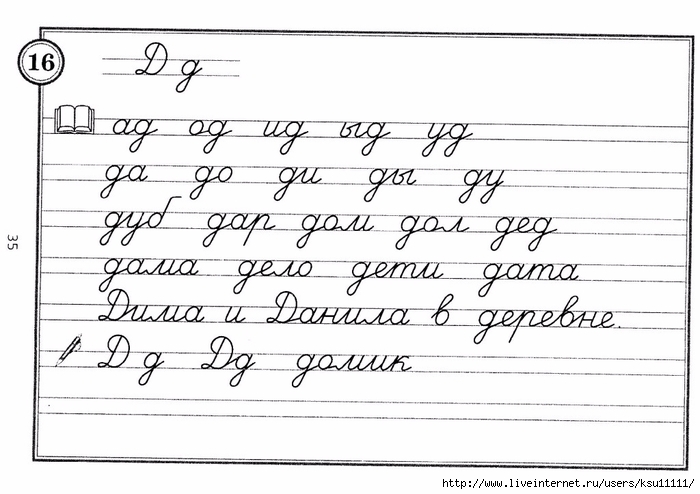 16
Д д
ад од ид ыд уд
да до ди ды ду
дуб дар дом дол дед
дама дело дети дата
Дима и Данила в деревне.
Д д Дд домик
35
http://www.liveinternet.ru/users/ksu11111/